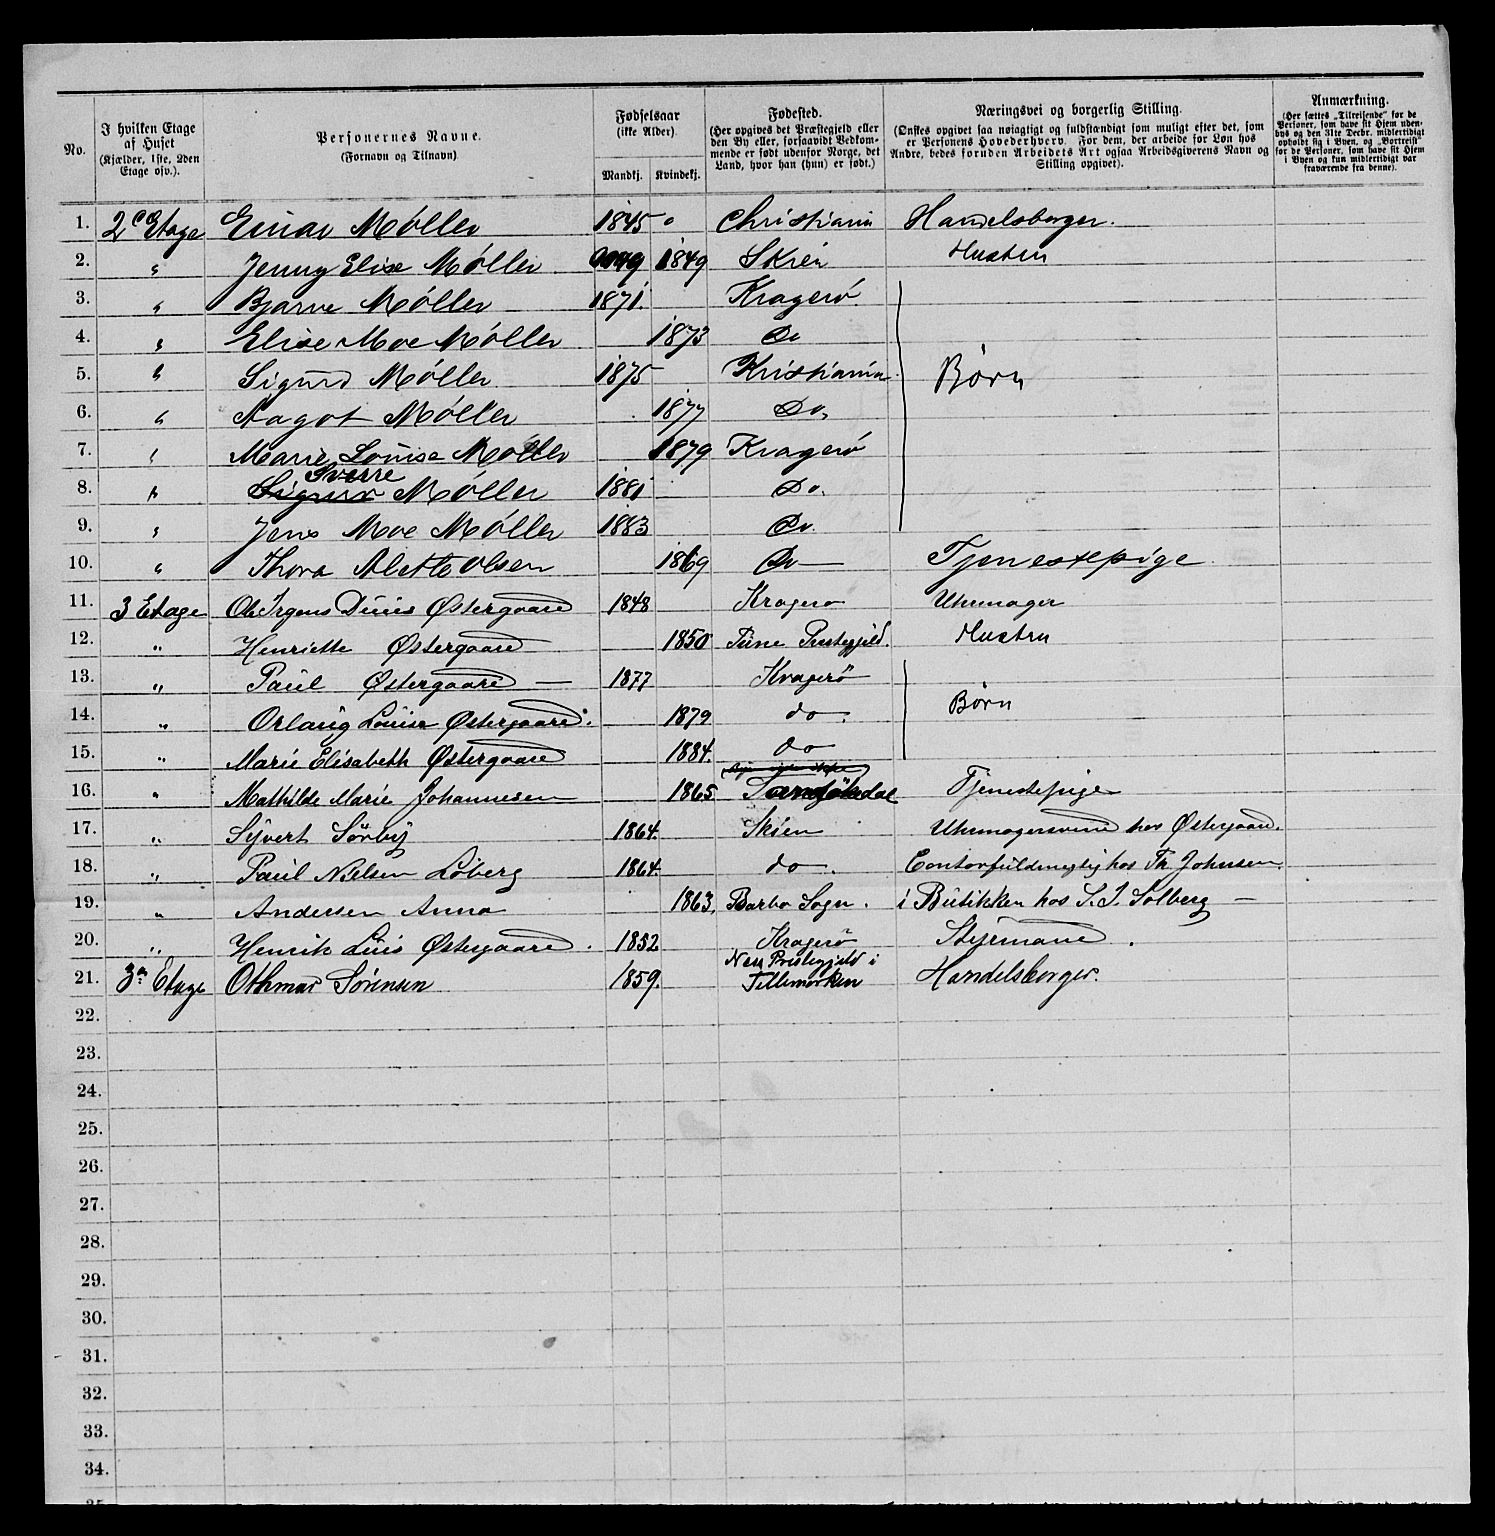 No. | I hvilken Etage af Huset (Kjælder, 1ste, 2den Etage osv.). | Personernes Navne. (Fornavn og Tilnavn) | Fødselsaar (ikke Alder) Mandkj. | Kvindekj. | Fødested. (Her opgives det Præstegjeld eller den By eller, forsaavidt Vedkommende er født udenfor Norge, det Land, hvor han (hun) er født.) | Næringsvei og borgerlig Stilling. (Ønskes opgivet saa nøiagtigt og fuldstændigt som muligt efter det, som er Personens Hovederhverv. For dem, der arbeide for Løn hos Andre, bedes foruden Arbeidets Art ogsaa Arbeidsgiverens Navn og Stilling opgivet). | Anmærkning. (Her sættes „Tilreisende" for de Personer, som have sit Hjem udenbys og den 31te Decbr. midlertidigt opholdt sig i Byen, og „Bortreist" for de Personer, som have sit Hjem i Byen og kun midlertidigt var fraværende fra denne).
1. 2 Etage Einar Møller 1845 Christiania Handelsborger.
2. " Jenny Elise Møller 1849 Skien Hustru
3. " Bjarne Møller 1871. Kragerö
4. " Elise Moe Møller 1873 Do
5. " Sigurd Møller 1875 Kristiania Børn
6. " Aagot Møller 1877 Do.
7. " Marie Louise Møller 1879 Kragerö
8. " Sigurd Sverre Møller 1881 Do.
9. " Jens Moe Møller 1883 Do.
10. " Thora Alette Olsen 1869 Do — Tjenestepige
11. 3 Etage Ole Irgens Duus Østergaard 1848 Kragerø Uhrmager
12. " Henriette Østergaard 1850 Prestegjeld. Hustru
13. " Paul Østergaard — 1877 Kragerö
14. " Louise Østergaard. 1879 do. Børn
15. " Marie Elisabeth Østergaard 1884. do
16. " Mathilde Marie Johannesen 1865 Sannökedal Tjenestepige
17. " Syvert Sörby 1864. Skien Uhrmagersvend hos Østergaard.
18. " Paul Nielsen Löberg 1864. do. Contorfuldmegtig hos Th. Johnsen
19. " Andersen Anna 1863. Barbo Sogn. i Butikken hos S. I. Solberg —
20. " Henrik Duus Østergaard. 1852 Kragerö Styrmand.
21. 3. Etage Othmar Sørensen 1859. Præstegjeld i Tellemarken Handelsborger.
22.
23.
24.
25.
26.
27.
28.
29.
30.
31.
32.
33.
34.